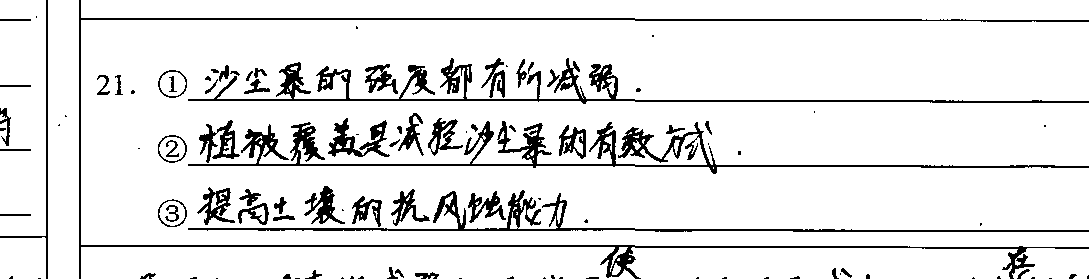 21. ① 沙尘暴的强度都有所减弱.
② 植被覆盖是减轻沙尘暴的有效方式.
③ 提高土壤的抗风蚀能力.
使